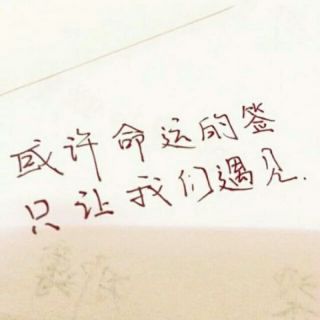 或许命运的签
只让我们遇见.